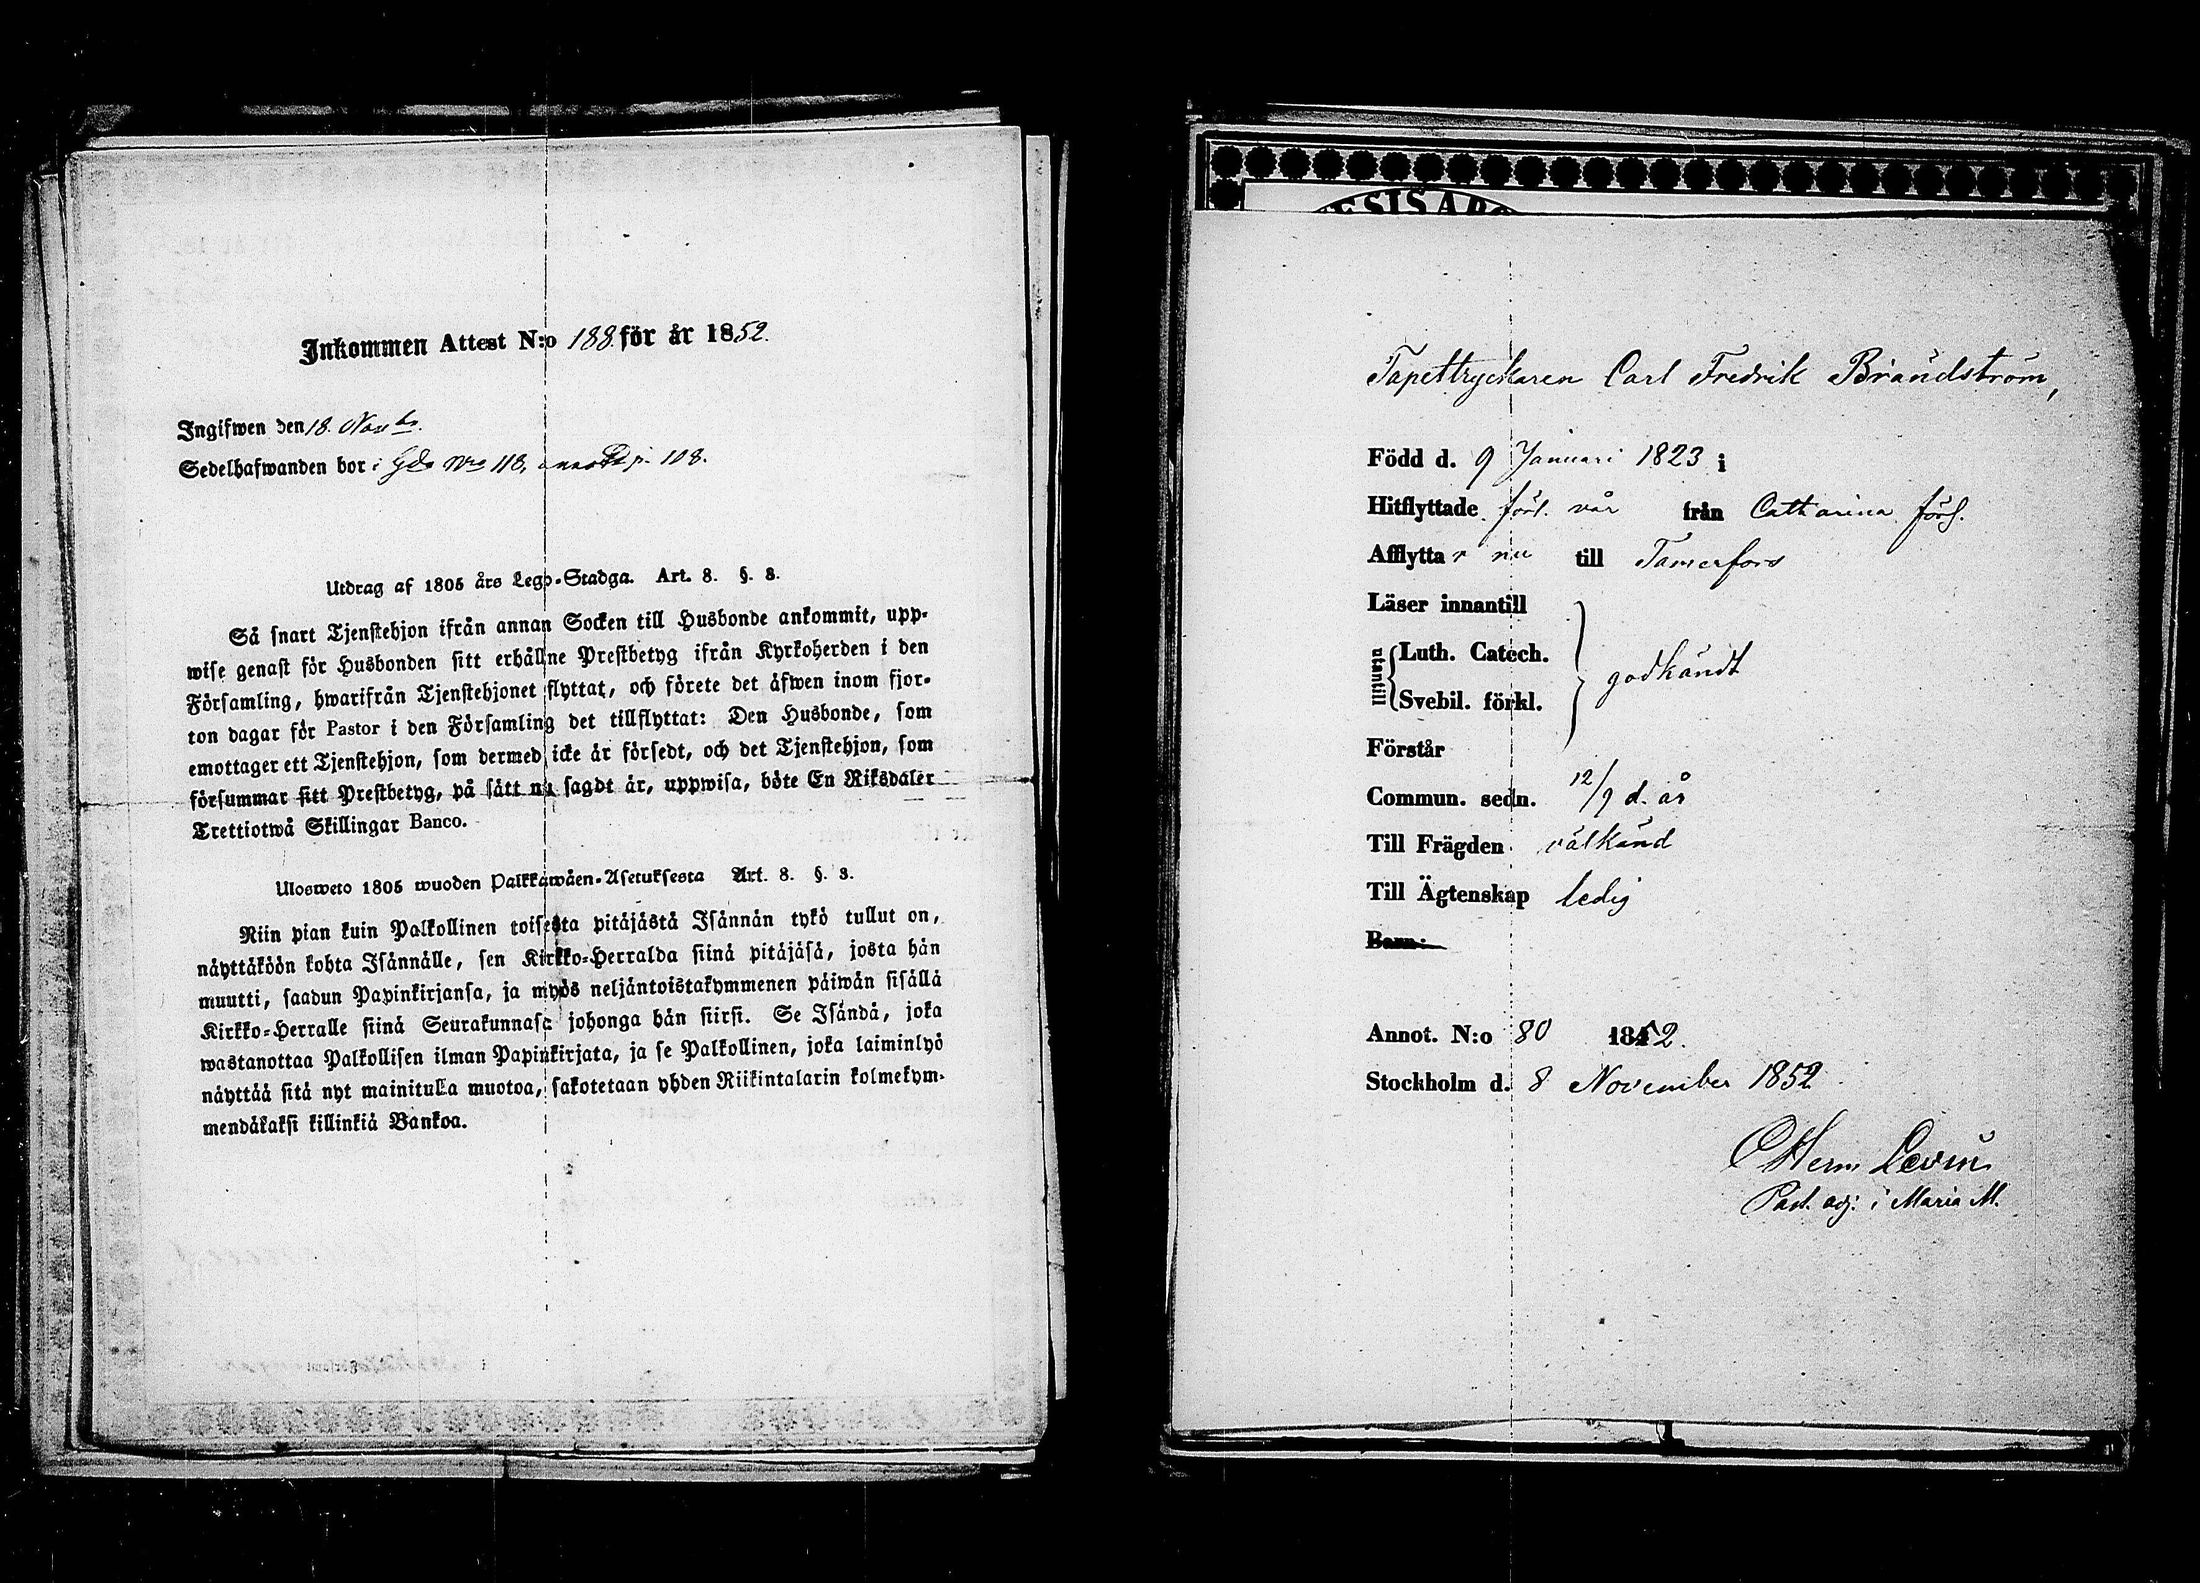 Inkommen Attest N:o 188. för år 1852.
Ingifwen den 18. Novbr.
Sedelhafwanden bor i Gdn No 118, annot. p. 108.
Utdrag af 1805 års Lego-Stadga. Art. 8. §. 3.
Så snart Tjenstehjon ifrån annan Socken till Husbonde ankommit, upp-
wise genast för Husbonden sitt erhållne Prestbetyg ifrån Kyrkoherden i den
Församling, hwarifrån Tjenstehjonet flyttat, och förete det äfwen inom fjor-
ton dagar för Pastor i den Församling det tillflyttat: Den Husbonde, som
emottager ett Tjenstehjon, som dermed icke är försedt, och det Tjenstehjon, som
försummar sitt Prestbetyg, på sätt nu sagdt är, uppwisa, böte En Riksdaler
Trettiotwå Skillingar Banco.
Ulosweto 1805 wuoden Palkkawäen-Asetuksesta Art. 8. §. 3.
Niin pian kuin Palkollinen toisesta pitäjästä Isännän tykö tullut on,
näyttäköön kohta Isännälle, sen Kirkko-Herralda siinä pitäjäsä, josta hän
muutti, saadun Papinkirjansa, ja myös neljäntoistakymmenen päiwän sisällä
Kirkko-Herralle siinä Seurakunnasa johonga hän siirsi. Se Isändä, joka
wastanottaa Palkollisen ilman Papinkirjata, ja se Palkollinen, joka laiminlyö
näyttää sitä nyt mainitulla muotoa, sakotetaan yhden Riikintalarin kolmekym-
mendäkaksi killinkiä Bankoa.
Tapettryckaren Carl Fredrik Brandström,
Född d. 9 Januari 1823 i
Hitflyttade förl. vår från Catharina förs.
Afflyttar nu till Tamerfors
Läser innantill
utantill { Luth. Catech. godkändt
Svebil. förkl.
Förstår
Commun. sedn. 12/9 d. år
Till Frägden välkänd
Till Ägtenskap ledig
Barn:
Annot. N:o 80 1852.
Stockholm d. 8 November 1852
O Herm Levin
Past. adj: i Maria M.